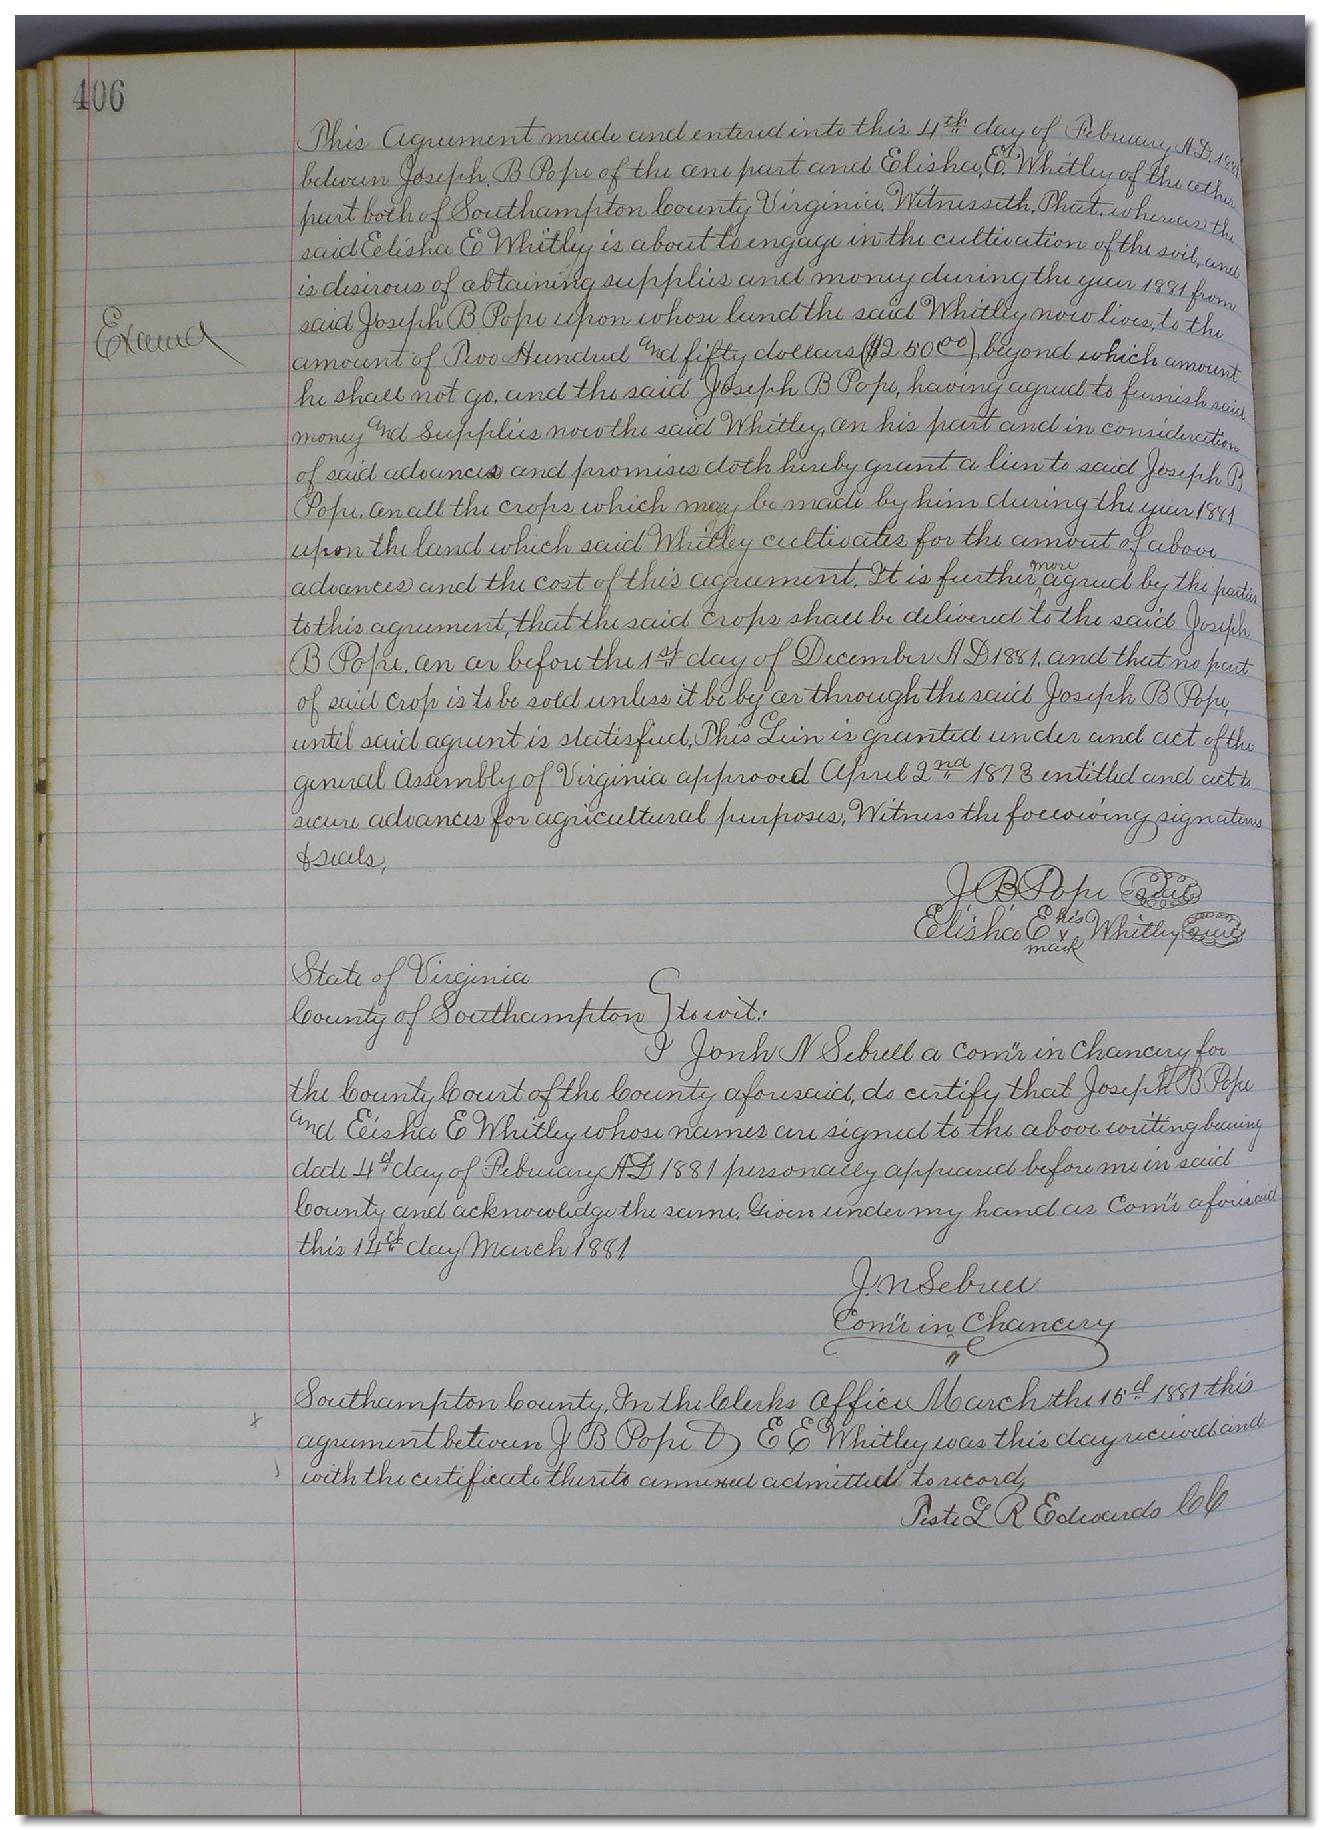 406
This Agreement made and entered into this 4th day of February A.D. 1881
between Joseph. B Pope of the one part and Elisha, E. Whitley of the other
part both of Southampton County Virginia. Witnesseth, That, whereas the
said Elisha E Whitley is about to engage in the cultivation of the soil, and
is desirous of obtaining supplies and money during the year 1881 from
said Joseph B Pope upon whose land the said Whitley now lives, to the
Examd
amount of Two Hundred and fifty dollars ($250 00) beyond which amount
he shall not go, and the said Joseph B Pope, having agreed to furnish said
money and supplies now the said Whitley, on his part and in consideration
of said advances and promises doth hereby grant a lien to said Joseph B
Pope. on all the crops which may be made by him during the year 1881
upon the land which said Whitley cultivates for the amount of above
advances and the cost of this agreement. It is further more agreed by the parties
to this agreement, that the said crops shall be delivered to the said Joseph
B Pope. on or before the 1st day of December A D 1881, and that no part
of said crop is to be sold unless it be by or through the said Joseph B Pope,
until said agrunt is statisfied, This Lein is granted under and act of the
general Assembly of Virginia approved April 2nd 1873 entitled and act to
secure advances for agricultural purposes, Witness the following signatures
& seals,
J B Pope Seal
Elisha E his x mark Whitley Seal
State of Virginia
County of Southampton } to wit:
I Jonh N Sebrell a Com'r in Chancery for
the County Court of the County aforesaid, do certify that Joseph B Pope
and Elisha E Whitley whose names are signed to the above writing bearing
date 4th day of February A D 1881 personally appeared before me in said
County and acknowledge the same. Given under my hand as Com'r aforesaid
this 14th day March 1881
J. N Sebrell
Com'r in Chancery
Southampton County, In the Clerks Office March the 15th 1881 this
agreement between J B Pope & E E Whitley was this day received and
with the certificate thereto annexed admitted to record,
Teste L R Edwards CC